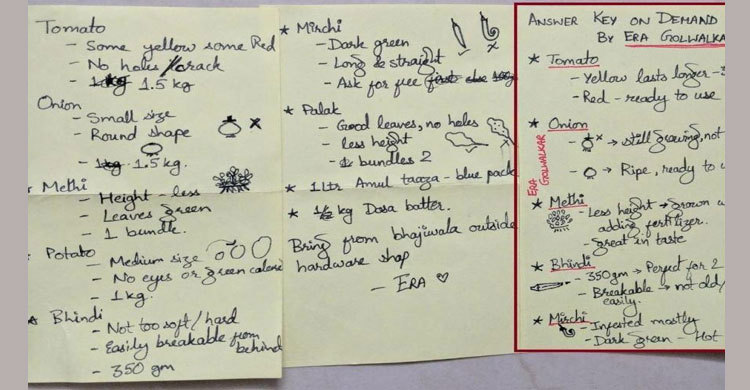 Tomato
- Some yellow some Red
- No holes / crack
- 1 kg 1.5 kg
Onion
- Small size
- Round shape
- 1 kg 1.5 kg.
Methi
- Height - less
- Leaves green
- 1 bundle.
Potato
- Medium size
- No eyes or green
- 1 kg.
★ Bhindi
- Not too soft / hard
- Easily breakable from behind
- 350 gm
★ Mirchi
- Dark green
- Long & straight
- Ask for free
★ Palak
- Good leaves, no holes
- less height
- bundles 2
★ 1 Ltr Amul taaza - blue pack
★ 1/2 kg Dosa batter.
Bring from bhajiwala outside
hardware shop
- ERA ♡
ANSWER KEY ON DEMAND
BY ERA GOLWALKA
★ Tomato
- Yellow lasts longer -
- Red - ready to use
★ Onion
→ still growing, not
→ Ripe, ready to u
ERA GOLWALKAR
★ Methi
- Less height → grown w
adding fertilizer.
- great in taste
★ Bhindi
- 350gm → Perfect for 2
- Breakable → not old/
easily.
★ Mirchi
- Infested mostly
- Dark green - Hot